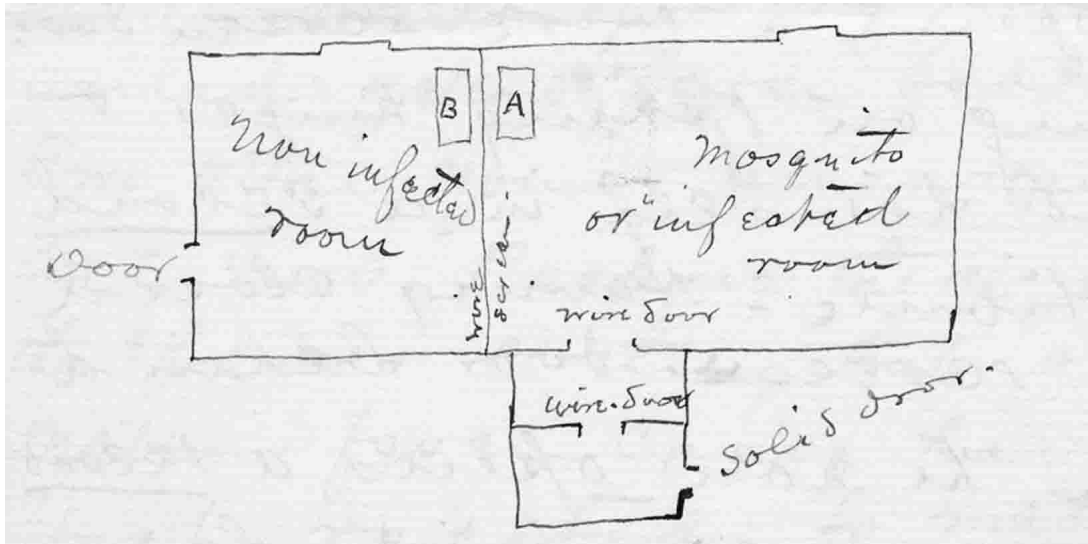 B
A
Non infected
room
Mosquito
or "infected
room
Door
wire
screen.
wire door
wire door
Solid door.